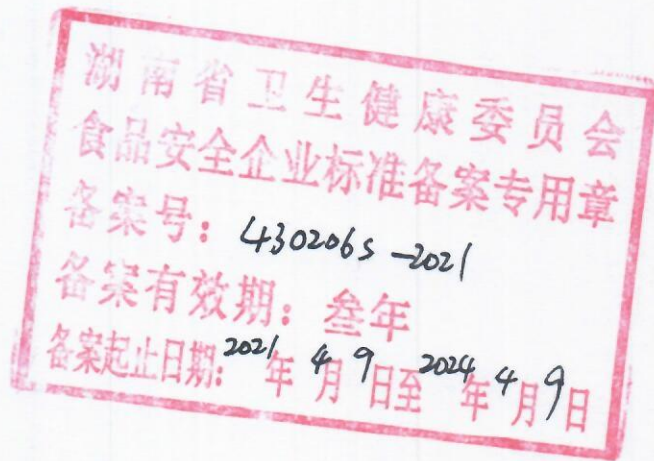 湖南省卫生健康委员会
食品安全企业标准备案专用章
备案号：430206S-2021
备案有效期：叁年
备案起止日期：2021年4月9日至2024年4月9日